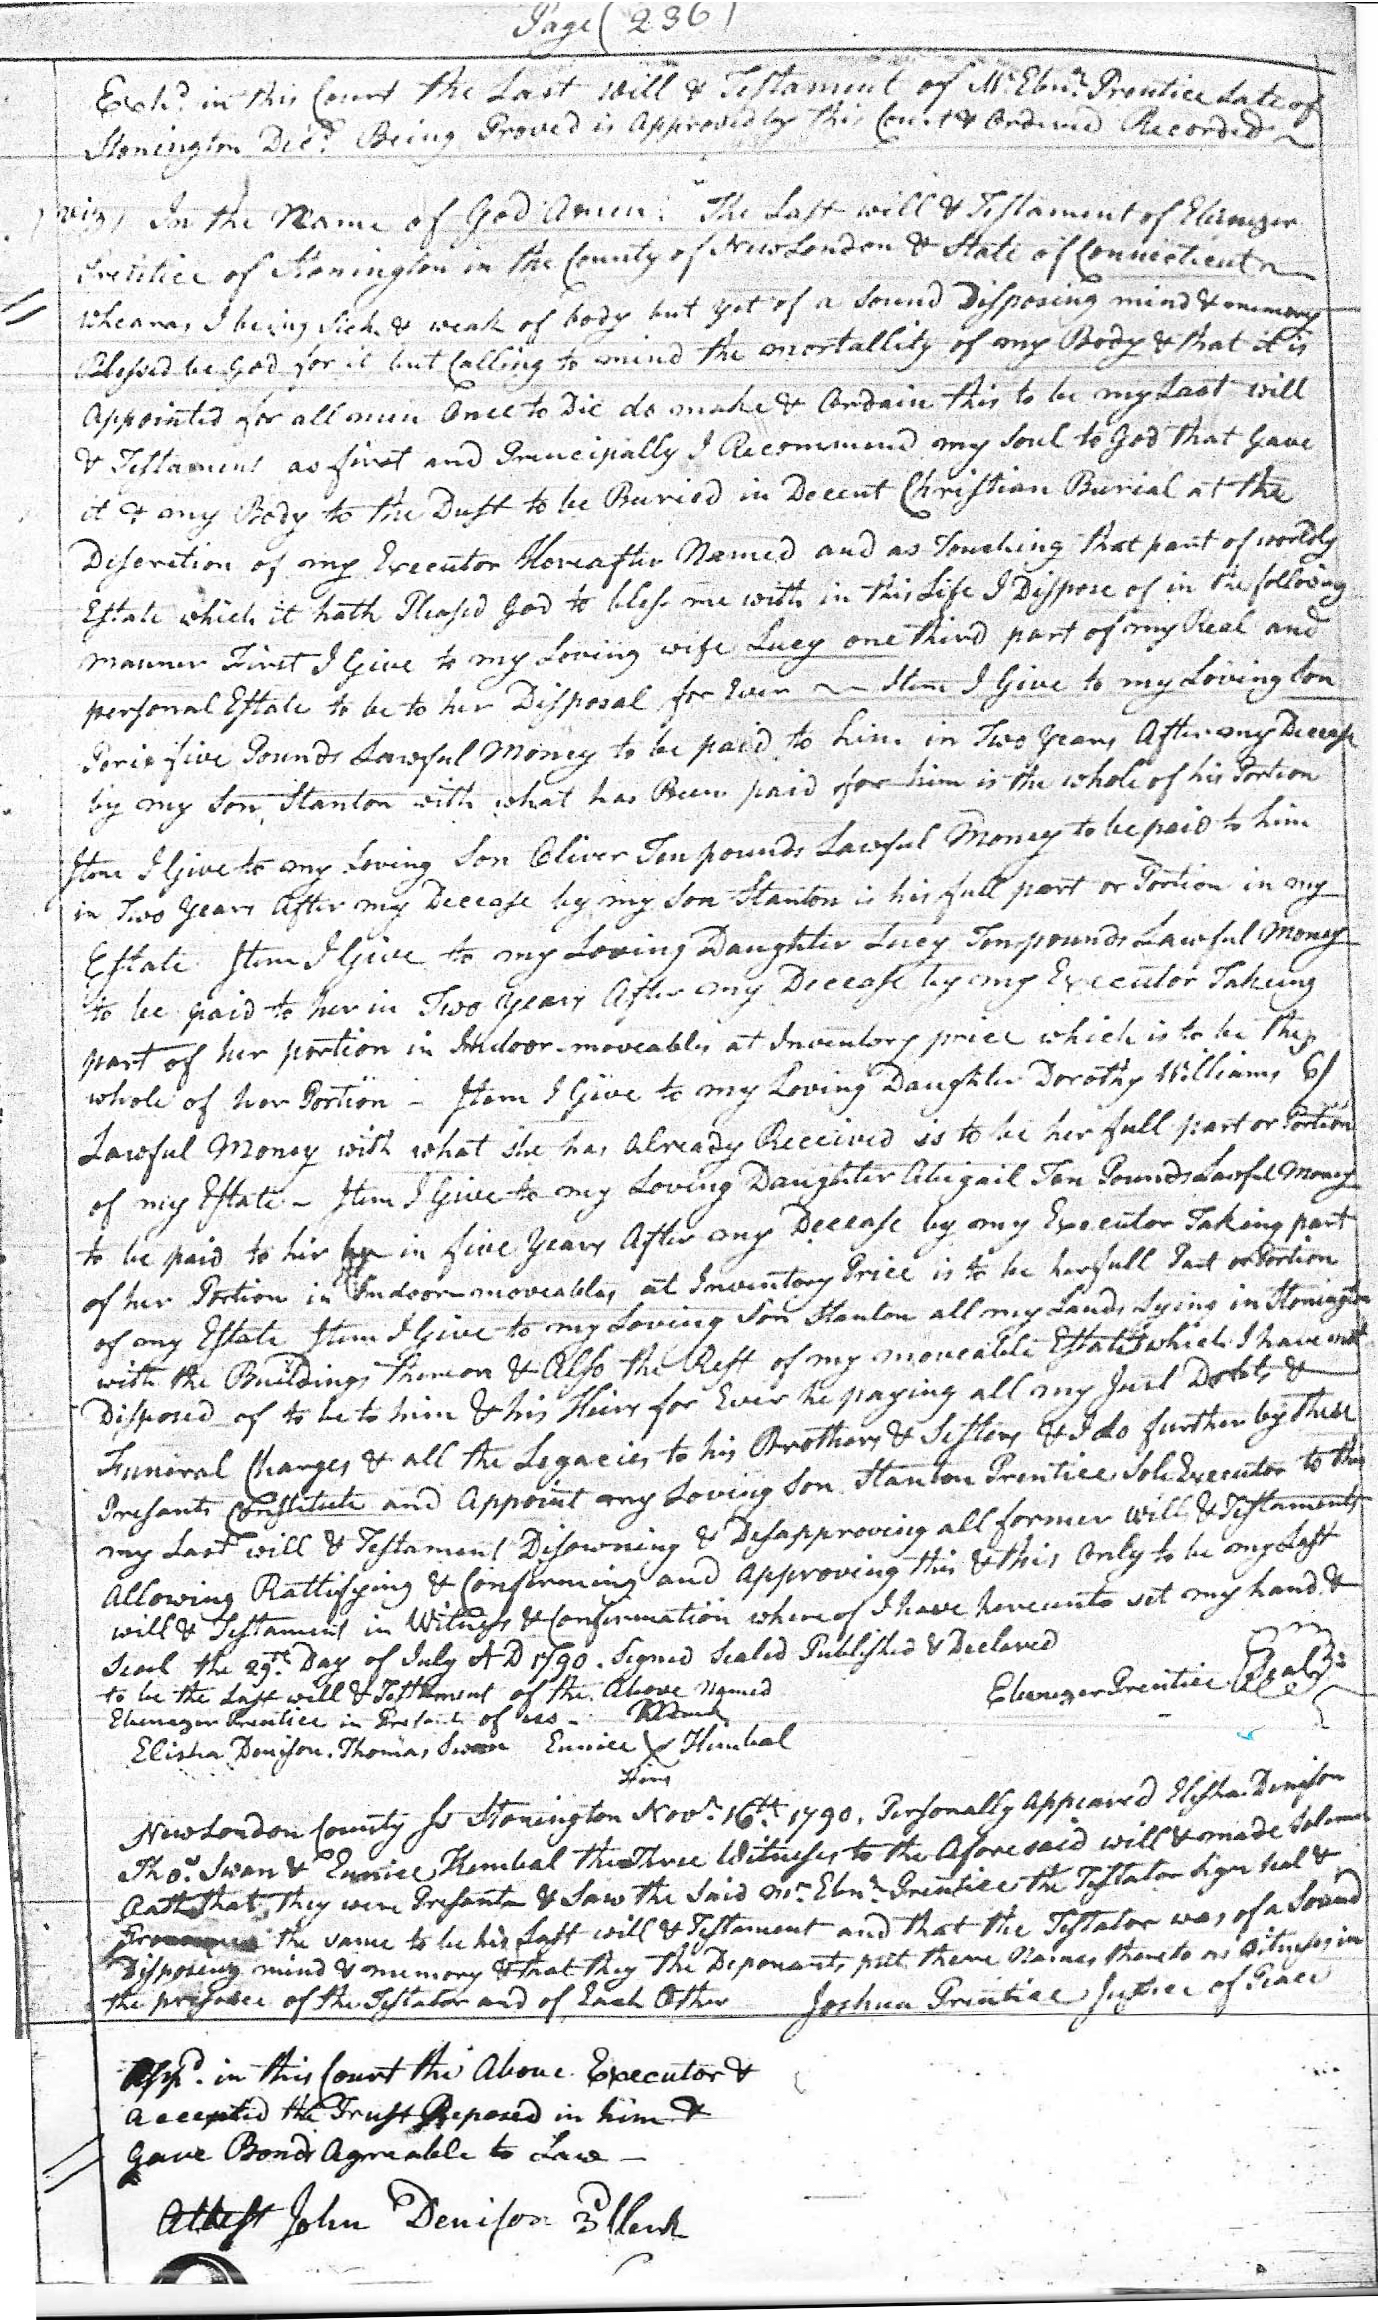 Page (236)
Exhd. in this Court the Last Will & Testament of Mr. Ebnr. Prentice Late of
Stonington Decd. Being Proved is Approved by this Court & Ordered Recorded
(viz) In the Name of God Amen: The Last will & Testament of Ebenezer
Prentice of Stonington in the County of New London & State of Connecticut
Wheareas I being Sick & weak of body but yet of a Sound Disposing mind & memory
Blessed be God for it but Calling to mind the mortallity of my Body & that it is
Appointed for all men Once to Die do make & Ordain this to be my Last will
& Testament as first and Princeipally I Recommend my Soul to God that Gave
it & my Body to the Dust to be Buried in Decent Christian Burial at the
Discretion of my Executor Hereafter Named and as Touching that part of worldly
Estate which it hath Pleased God to bless me with in this Life I Dispose of in the following
manner First I Give to my Loving wife Lucy one third part of my Real and
personal Estate to be to her Disposal for Ever Item I Give to my Loving Son
five Pounds Lawful Money to be paid to him in Two Years After my Decease
by my Son Stanton with what has Been paid for him is the whole of his Portion
Item I Give to my Loving Son Oliver Ten pounds Lawful Money to be paid to him
in Two Years After my Decease by my Son Stanton is his full part or Portion in my
Estate Item I Give to my Loving Daughter Lucy Ten pounds Lawful Money
to be paid to her in Two Years After my Decease by my Executor Takeing
part of her portion in Indoor moveables at Inventory price which is to be the
whole of her Portion - Item I Give to my Loving Daughter Dorothy Williams 6/
Lawful Money with what she has Already Received is to be her full part or Portion
of my Estate - Item I Give to my Loving Daughter Abigail Ten Pounds Lawful Money
to be paid to her in five Years After my Decease by my Executor Taking part
of her Portion in Indoor moveables at Inventory Price is to be her full Part or Portion
of my Estate Item I Give to my Loving Son Stanton all my Lands Lying in Stonington
with the Buildings thereon & Also the Rest of my moveable Estate which I have not
Disposed of to be to him & his Heirs for Ever he paying all my Just Debts &
Funeral Charges & all the Legacies to his Brothers & Sisters & I do further by these
Presants Constitute and Appoint my Loving Son Stanton Prentice Sole Executor to this
my Last will & Testament Disowning & Disapproving all former wills & Testaments
Allowing Rattifying & Confirming and Approving this & this Only to be my Last
will & Testament in Witness & Confirmation whereof I have hereunto set my hand &
Seal the 29th. Day of July AD 1790. Signed Sealed Published & Declared
to be the Last will & Testament of the Above Named
Ebenezer Prentice in Presants of us -
Ebenezer Prentice Seal
Elisha Denison. Thomas Swan Eunice X Kimbal
New London County Ss Stonington Novr. 16th. 1790. Personally Appeared Elisha Denison
Thos. Swan & Eunice Kembal the Three Witnesses to the Aforesaid will & made Solemn
Oath that they were Presants & Saw the Said Mr. Ebnr. Prentice the Testator Sign Seal &
Pronounce the same to be his Last will & Testament and that the Testator was of a Sound
Disposeing mind & memory & that they the Deponants put there Names thereto as Witnesses in
the presence of the Testator and of Each Other Joshua Prentice Justice of Peace
Appd. in this Court the Above Executor &
Accepted the Trust Reposed in him &
Gave Bonds Agreable to Law -
Attest John Denison 3d Clerk